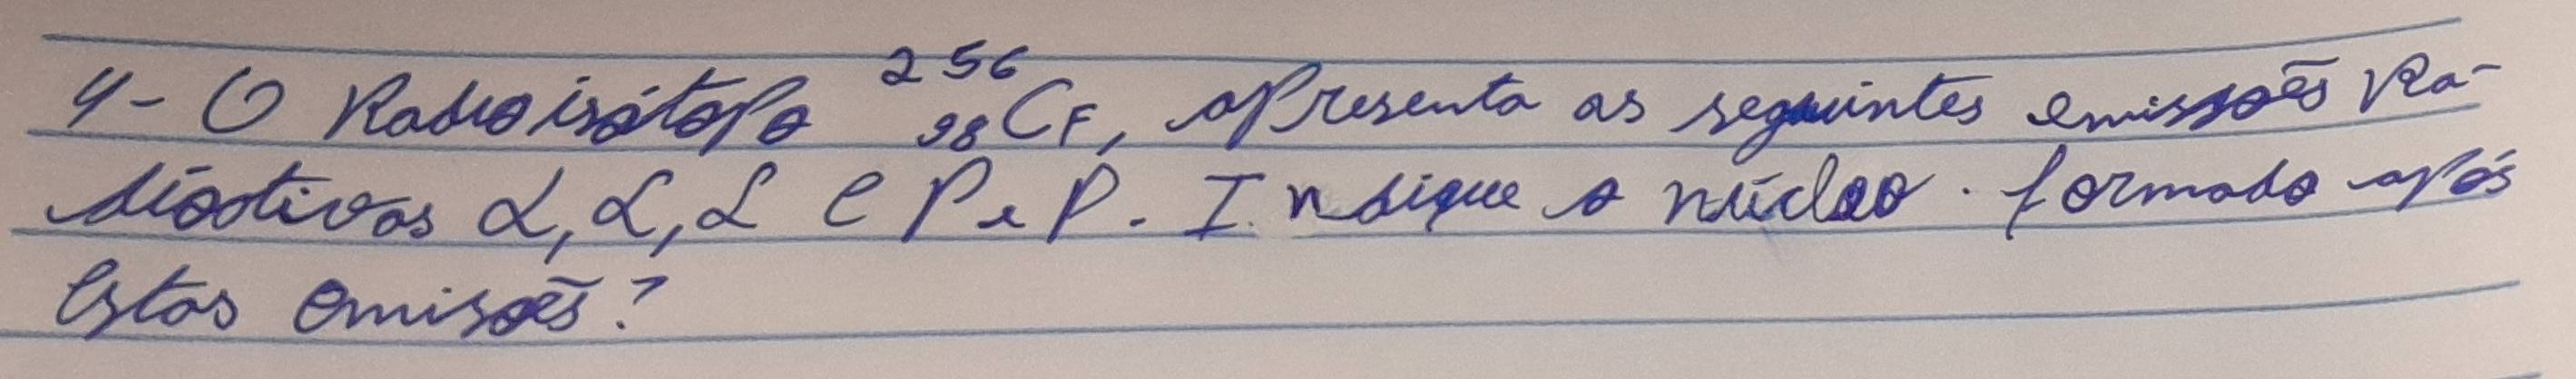 4- O Radioisótopo ²⁵⁶₉₈CF, apresenta as seguintes emissões Ra-
dioativas α, α, α e β e β. Indique o núcleo. formado após
estas emisões?